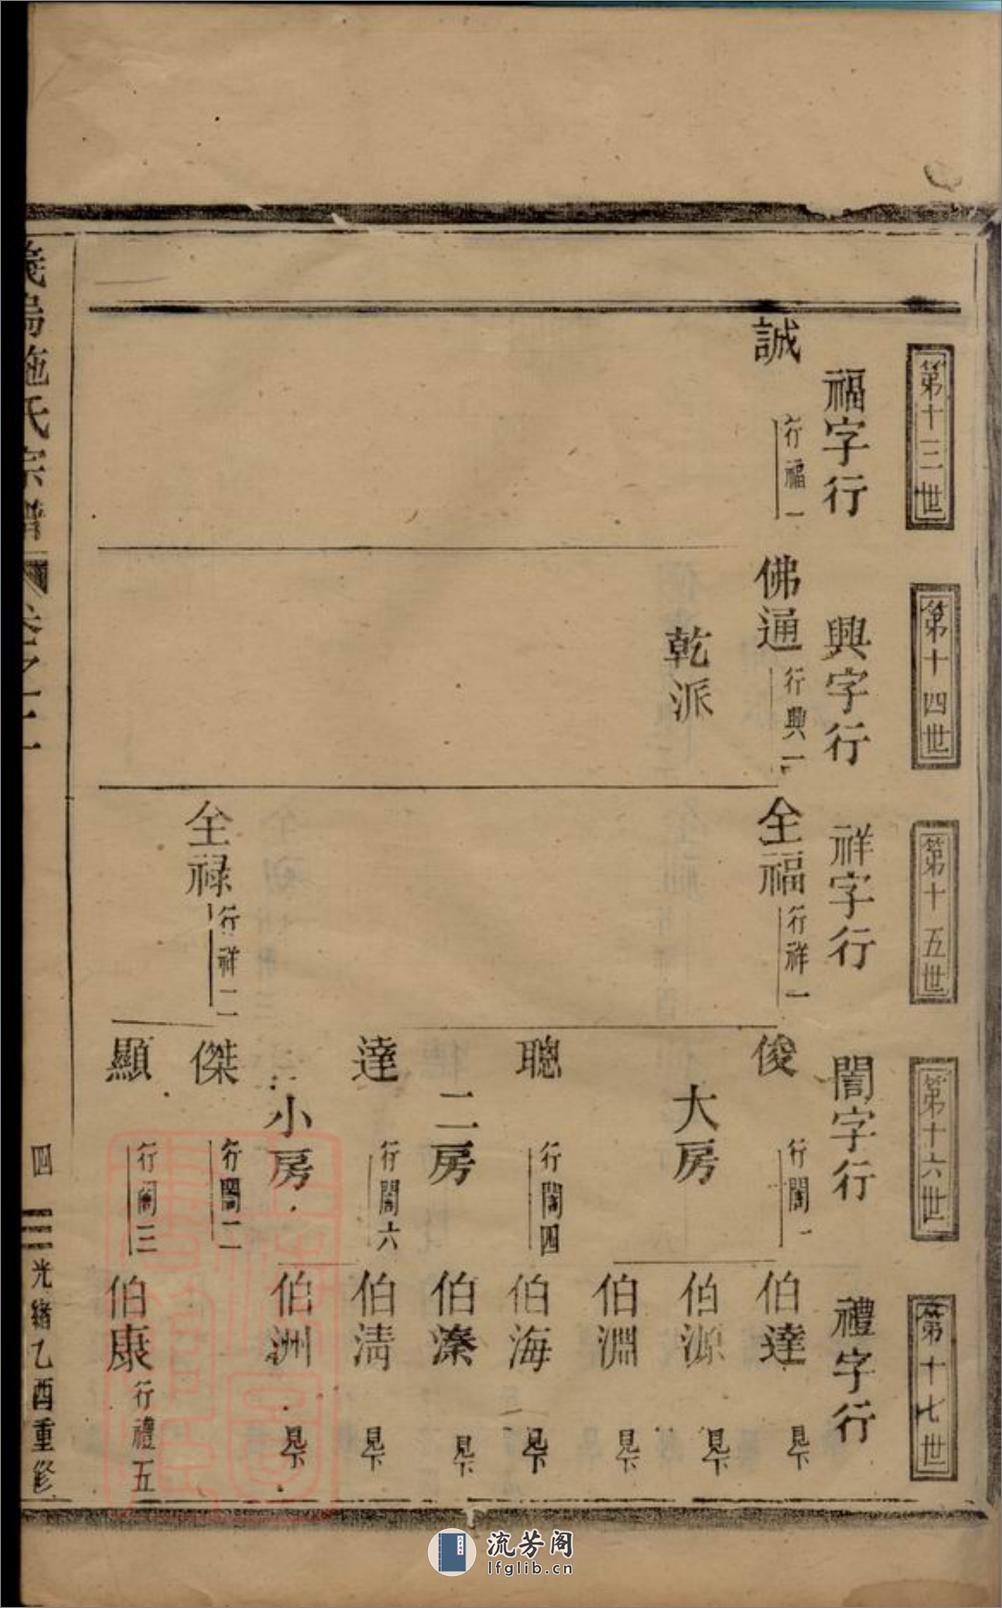 第十三世
第十四世
第十五世
第十六世
第十七世
福字行
興字行
祥字行
誾字行
禮字行
誠
行福一
佛通
行興一
乾派
全福
行祥一
全禄
行祥二
俊
行誾一
大房
聰
行誾四
二房
達
行誾六
小房
傑
行誾二
顯
行誾三
伯達
見下
伯源
見下
伯淵
見下
伯海
見下
伯溱
見下
伯清
見下
伯洲
見下
伯康
行禮五
義烏施氏宗譜
卷之二
四
光緒乙酉重修
流芳阁
lfglib.cn